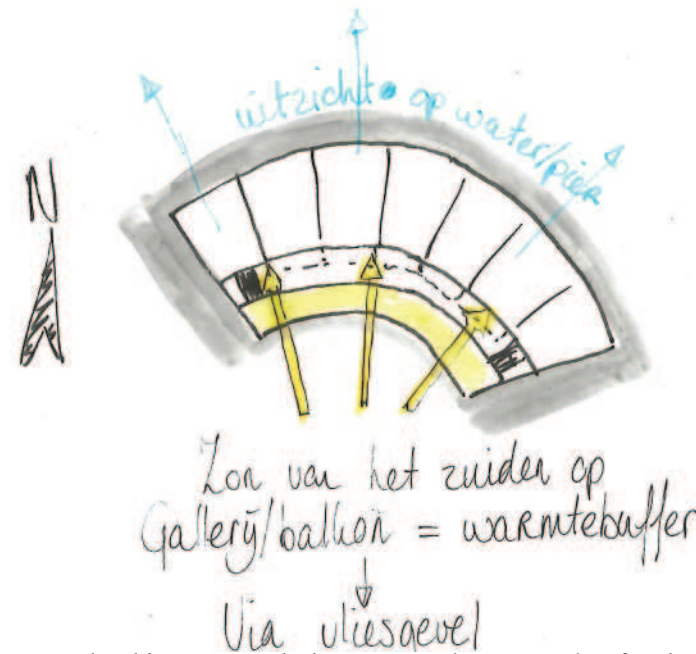 uitzicht op water/pier
N
Zon van het zuiden op
Gallerij/balkon = warmtebuffer
Via vliesgevel